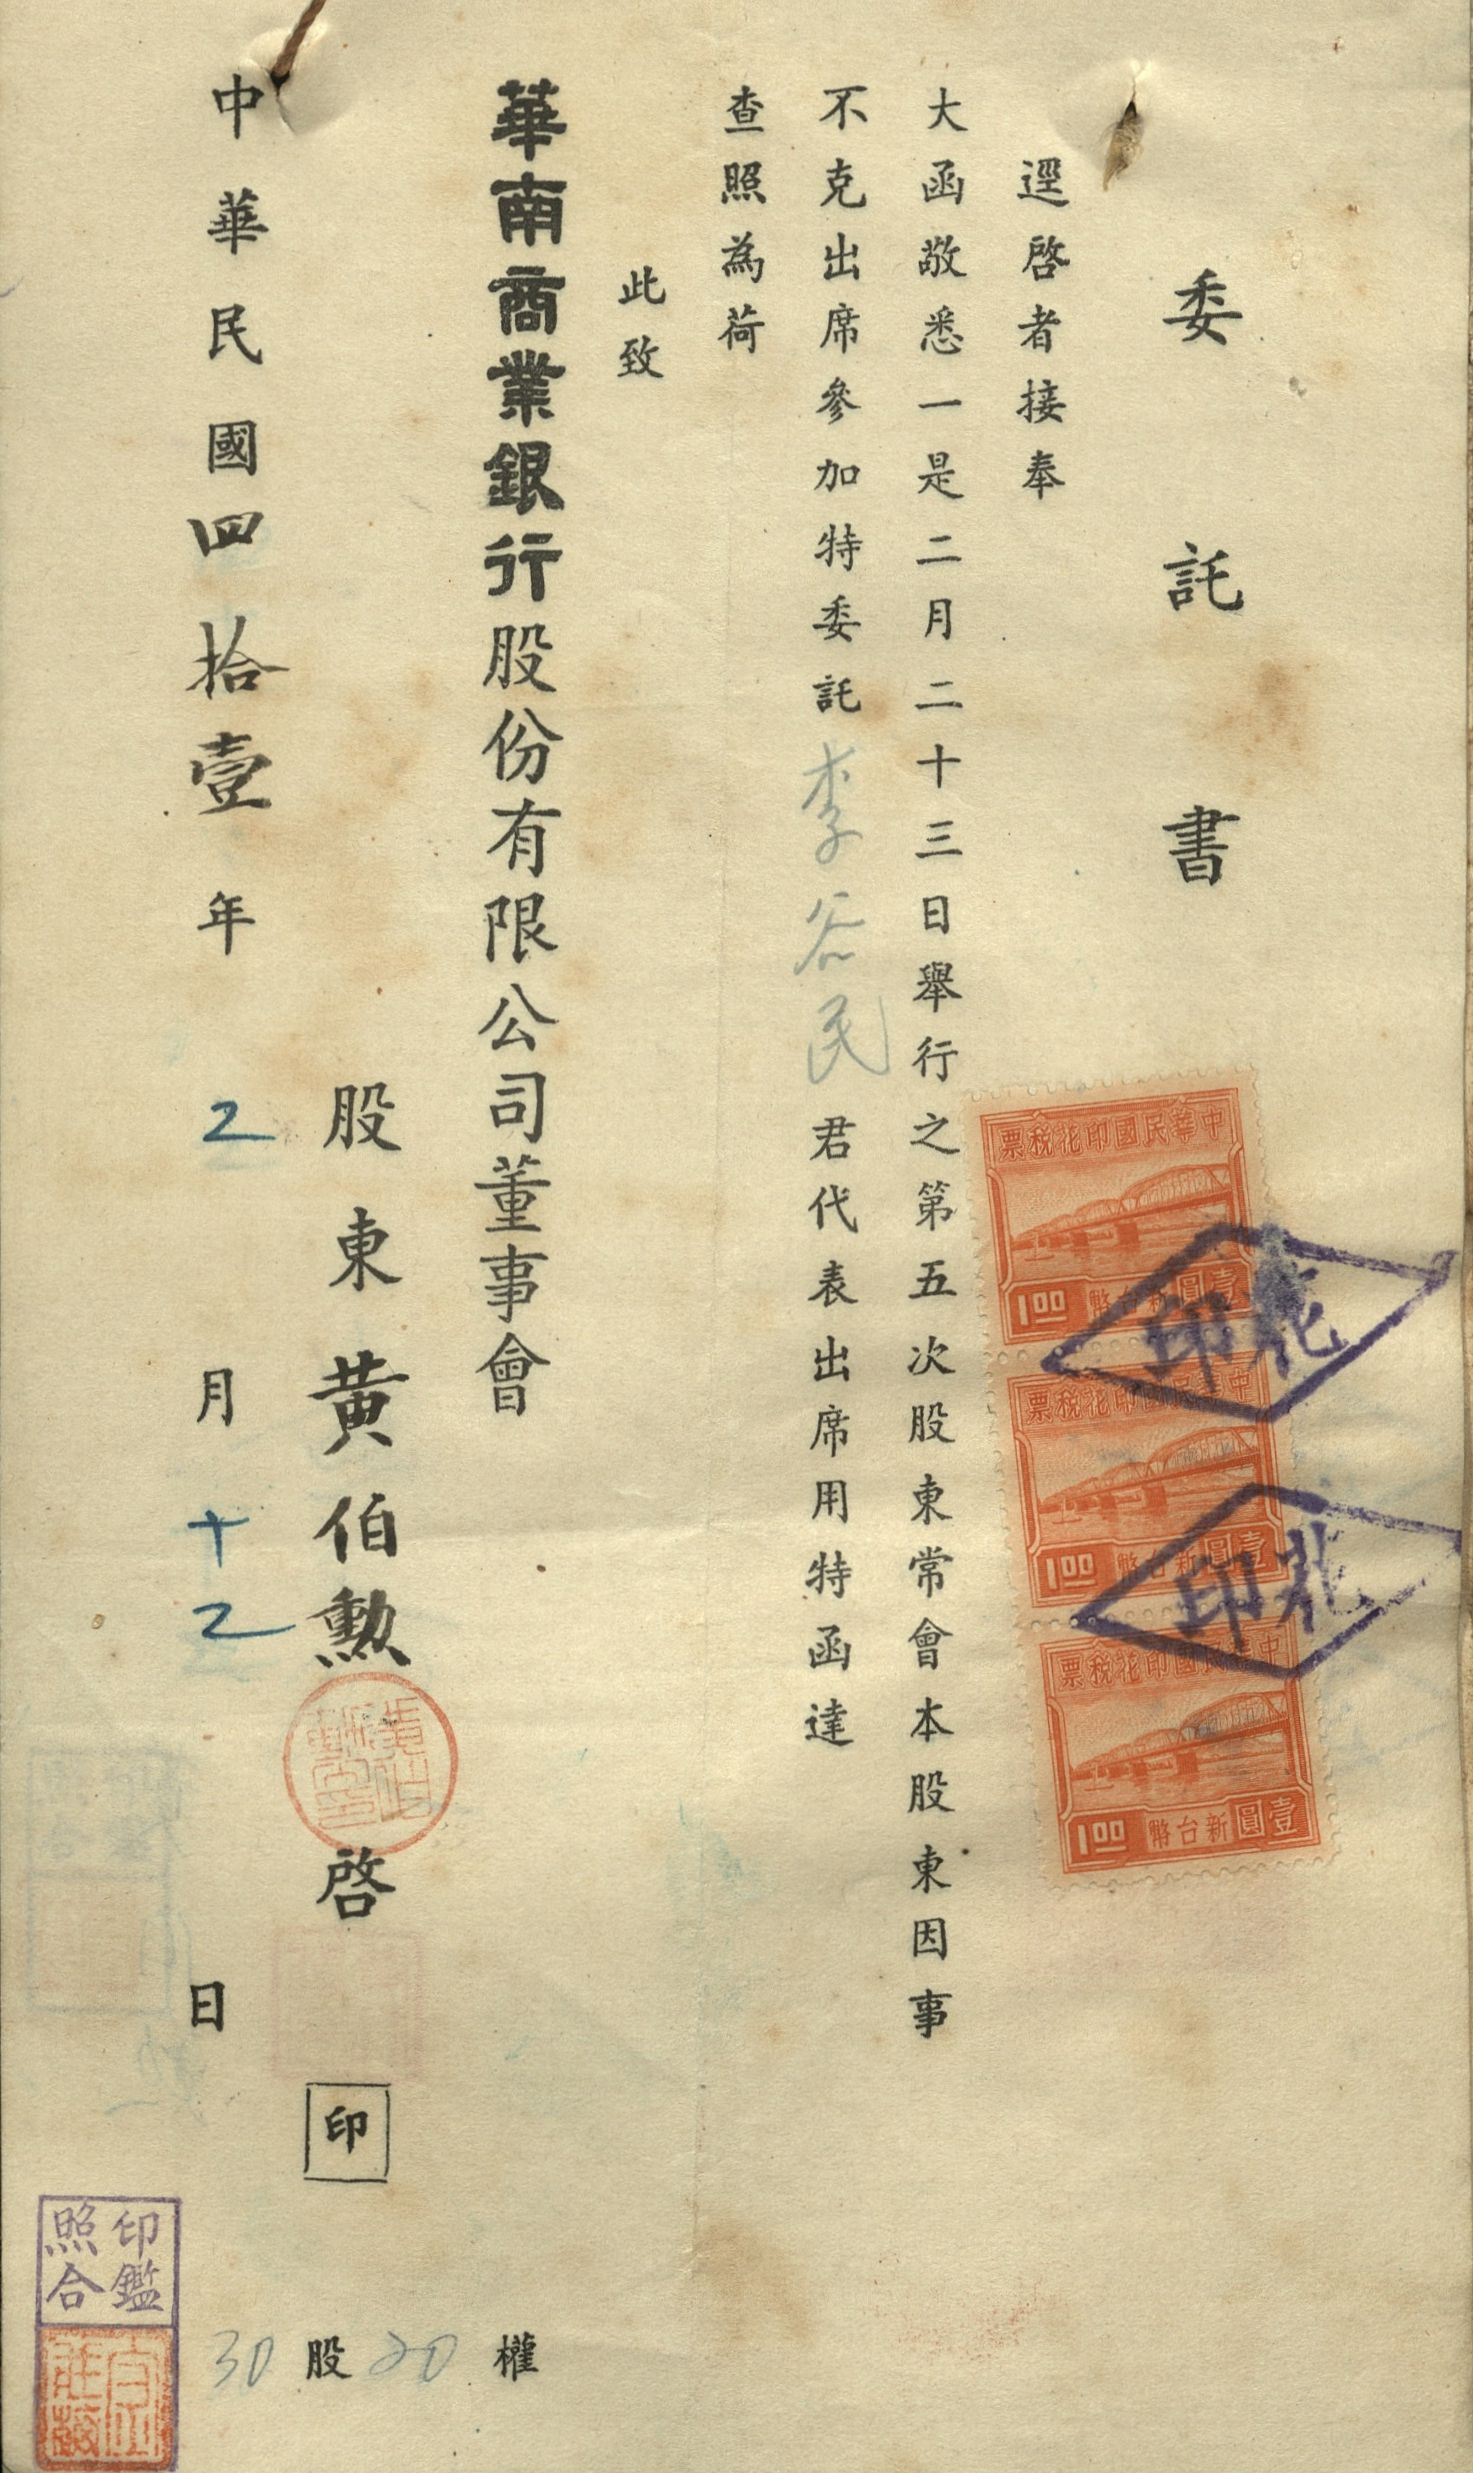 委託書
逕啓者接奉
大函敬悉一是二月二十三日舉行之第五次股東常會本股東因事
不克出席參加特委託李谷民君代表出席用特函達
查照為荷
此致
華南商業銀行股份有限公司董事會
股東黃伯勳啓 印
中華民國四拾壹年2月十2日
30股20權
中華民國印花稅票
壹圓新台幣 1.00
印花
中華民國印花稅票
壹圓新台幣 1.00
印花
中華民國印花稅票
壹圓新台幣 1.00
印鑑
照合